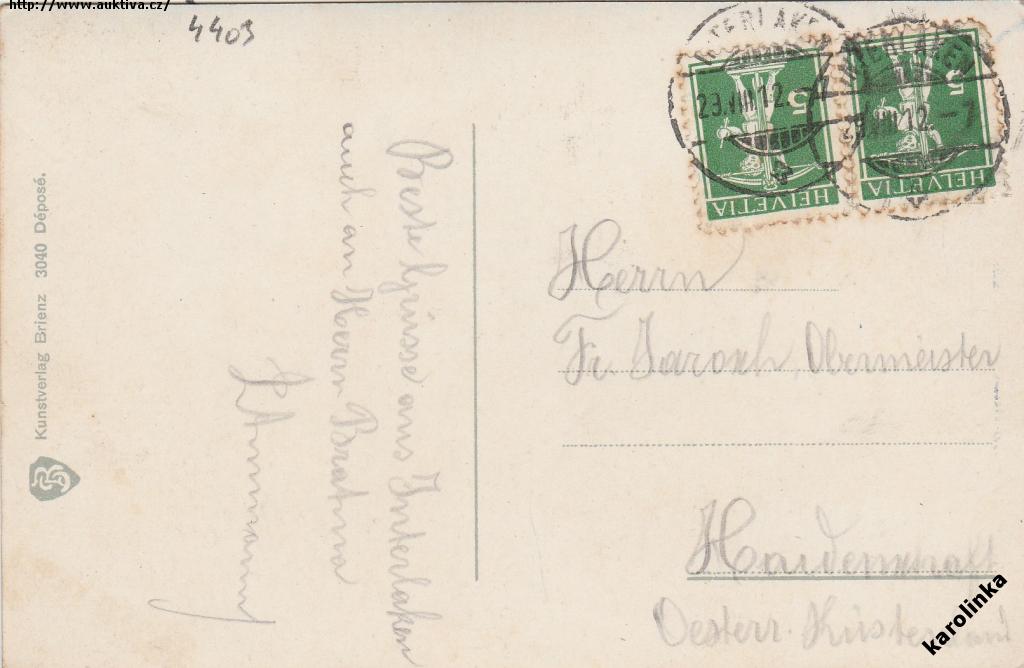 http://www.auktiva.cz/
4403
INTERLAKEN
INTERLAKEN
29.VIII.12.-7
VIII.12.-7
5
5
HELVETIA
HELVETIA
Beste Grüsse aus Interlaken
auch an Herrn Bratina
Herrn
Fr. Jaroch, Obermeister
Haidenschaft
Oesterr. Küstenland
Kunstverlag Brienz 3040 Déposé.
karolinka